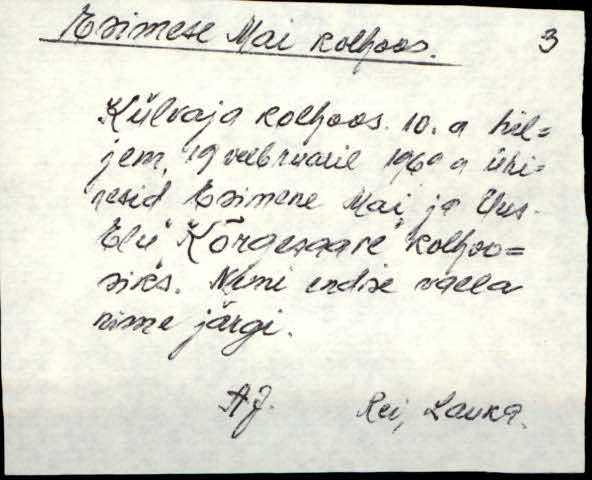 Esimese Mai kolhoos. 3
Külvaja kolhoos. 10. a hil=
jem, 19 veebruaril 1960 a ühi=
nesid Esimene Mai ja Uus-
Elu "Kõrgesaare" kolhoo=
siks. Nimi endise valla
nime järgi.
A.J. Rei, Lauka.